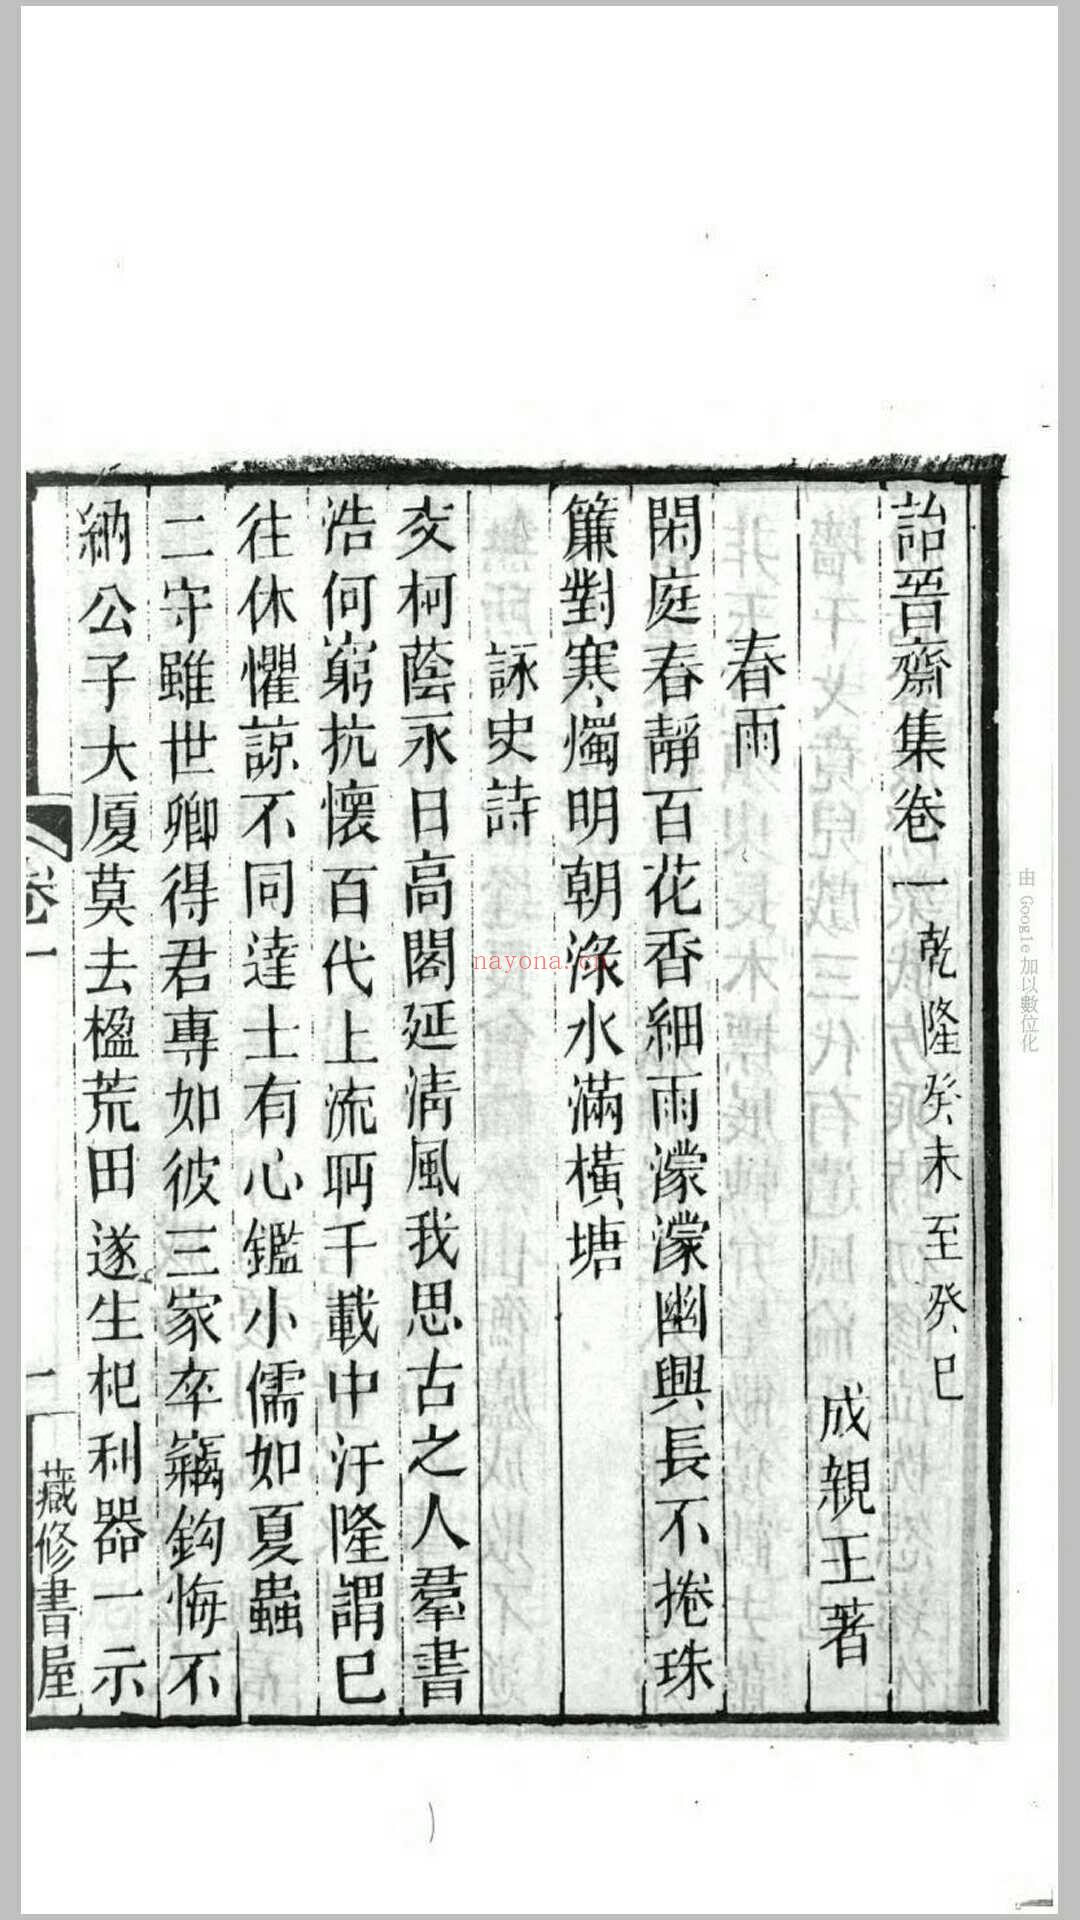 詒晉齋集卷一 乾隆癸未至癸巳
成親王著
春雨
閑庭春靜百花香細雨濛濛幽興長不捲珠
簾對寒燭明朝淥水滿橫塘
詠史詩
交柯蔭永日高閣延淸風我思古之人羣書
浩何窮抗懷百代上流眄千載中汙隆謂已
往休懼諒不同達士有心鑑小儒如夏蟲
二守雖世卿得君專如彼三家卒竊鈎悔不
納公子大厦莫去楹荒田遂生杞利器一示
卷一
一
藏修書屋
由 Google 加以數位化
nayona.cn